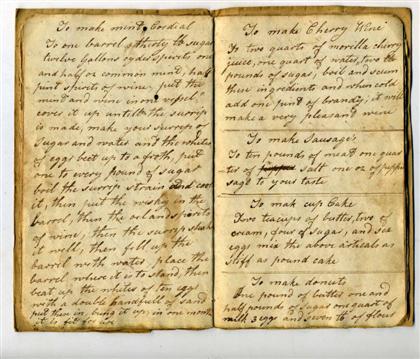 To make mint Cordial
To one barrel thirty lb sugar
twelve gallons cyder spirits one
and half oz common mint, half
pint spirits of wine, put the
mint and wine in one vessel,
cover it up untill the surrip
is made, make your surrop of
sugar and water and the whites
of eggs beet up to a froth, put
one to every pound of sugar
boil the surrop strain and cool
it, then put the wisky in the
barrel, then the oil and spirits
of wine, then the surrop shake
it well, then fill up the
barrel with water, place the
barrel where it is to stand, then
beat up the whites of ten eggs
with a double handfull of sand
put then in bung it up in one month
it is fit for use
To make Cherry Wine
To two quarts of morella cherry
juice, one quart of water, two
pounds of sugar; boil and scum
these ingredients and when cold
add one pint of brandy, it will
make a very pleasant wine
To make Sausage
To ten pounds of meat one quar
ter of salt one oz of pepper
sage to your taste
To mak cup Cake
Two teacups of butter, two of
cream, four of sugar, and six
eggs mix the above articals as
stiff as pound cake
To make donuts
One pound of butter one and
half pounds of sugar one quart of
milk 3 eggs and seven lb of flour